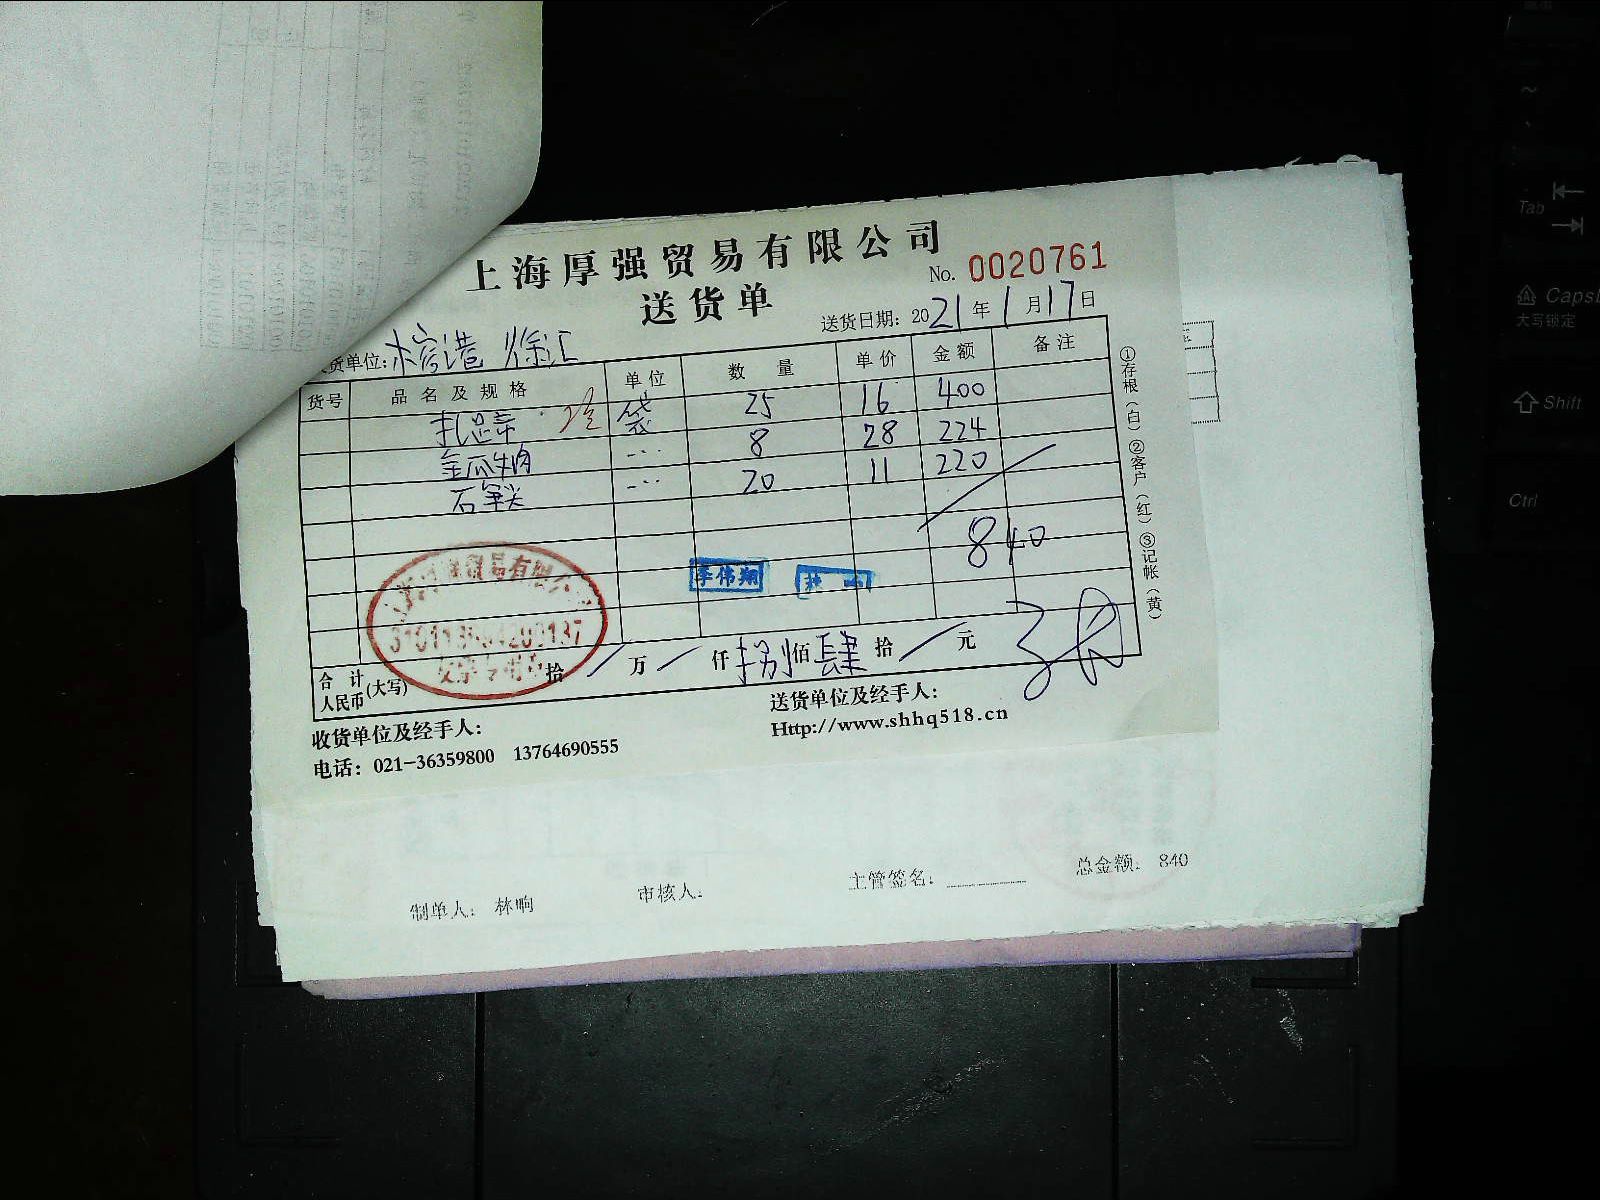 上海厚强贸易有限公司
No. 0020761
送货单
送货日期: 2021年1月17日
货单位: 徐汇
货号 品名及规格 单位 数量 单价 金额 备注
袋 25 16 400
金瓜牛肉 8 28 224
石 20 11 220
840
李伟翔
贸易有限公
合计人民币(大写) 拾 万 仟 捌佰 肆拾 元
收货单位及经手人:
送货单位及经手人:
电话: 021-36359800 13764690555
Http://www.shhq518.cn
①存根(白)②客户(红)③记帐(黄)
制单人: 林响
审核人:
主管签名:
总金额: 840
Tab
Caps
大写锁定
Shift
Ctrl